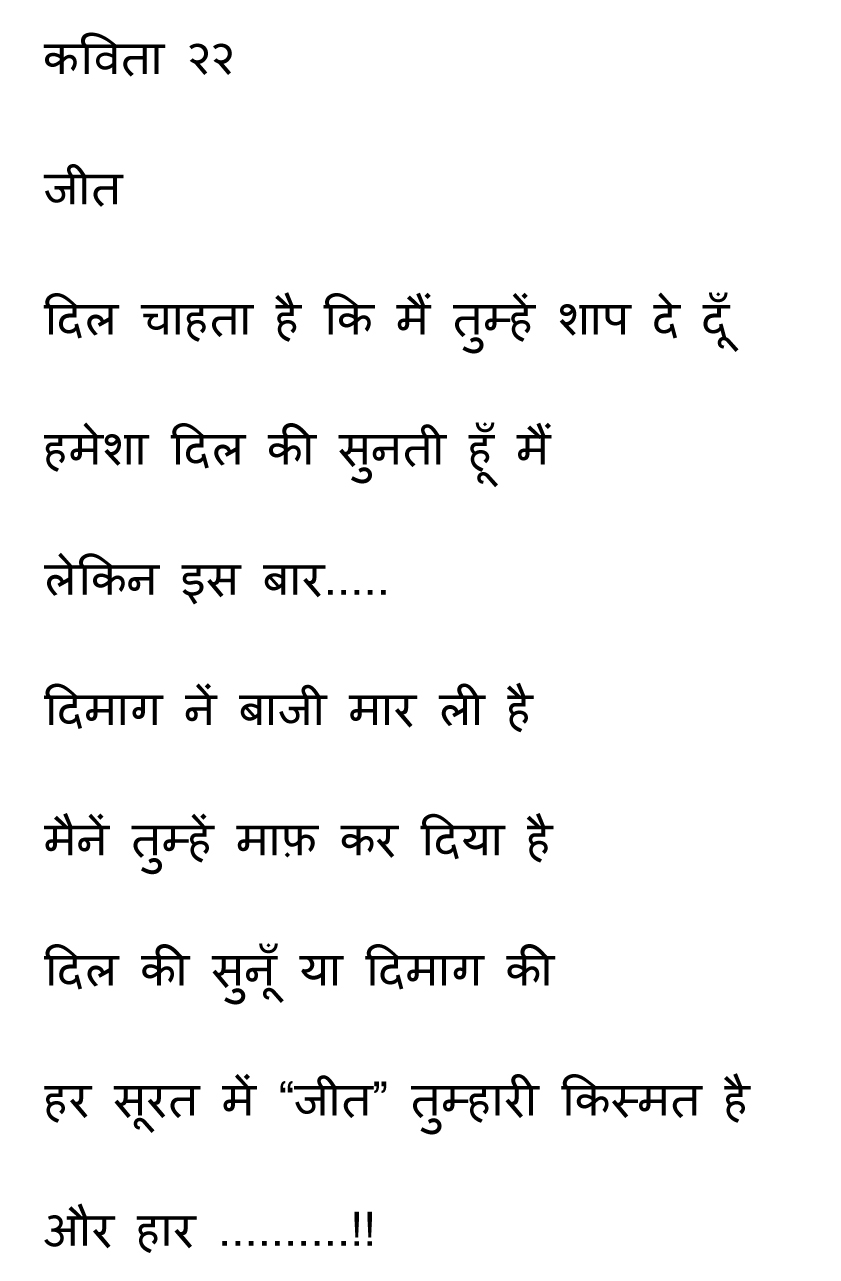 कविता २२
जीत
दिल चाहता है कि मैं तुम्हें शाप दे दूँ
हमेशा दिल की सुनती हूँ मैं
लेकिन इस बार.....
दिमाग नें बाजी मार ली है
मैनें तुम्हें माफ़ कर दिया है
दिल की सुनूँ या दिमाग की
हर सूरत में “जीत” तुम्हारी किस्मत है
और हार ..........!!